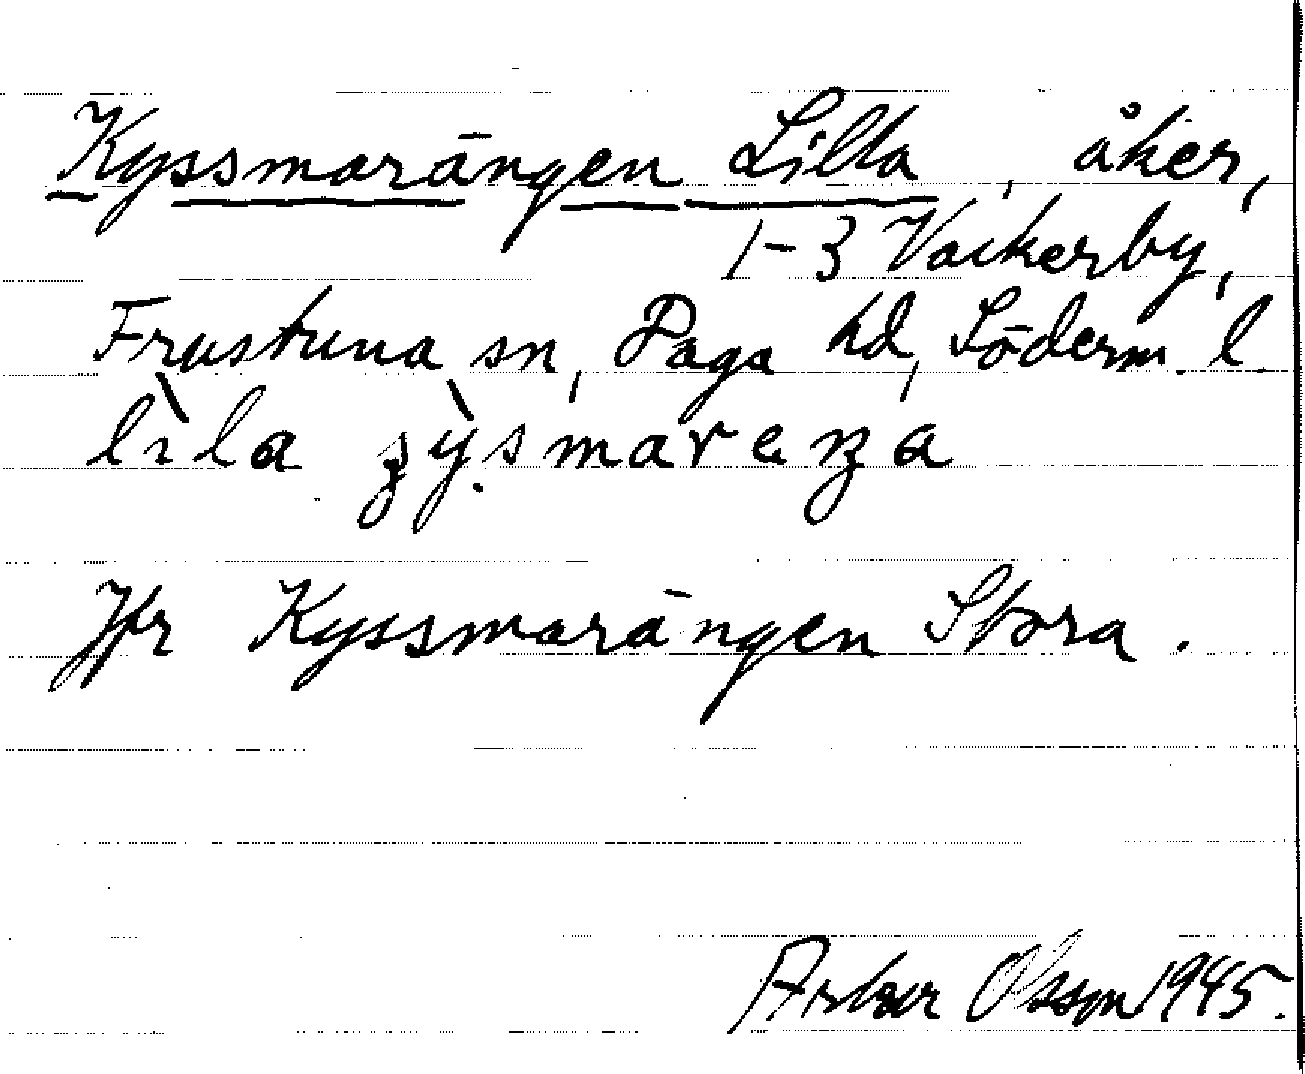 Kyssmarängen Lilla, åker,
1-3 Vackerby,
Frustuna sn, Daga hd, Söderm. l.
Jfr Kyssmarängen Stora.
Arthur Olsson 1945.